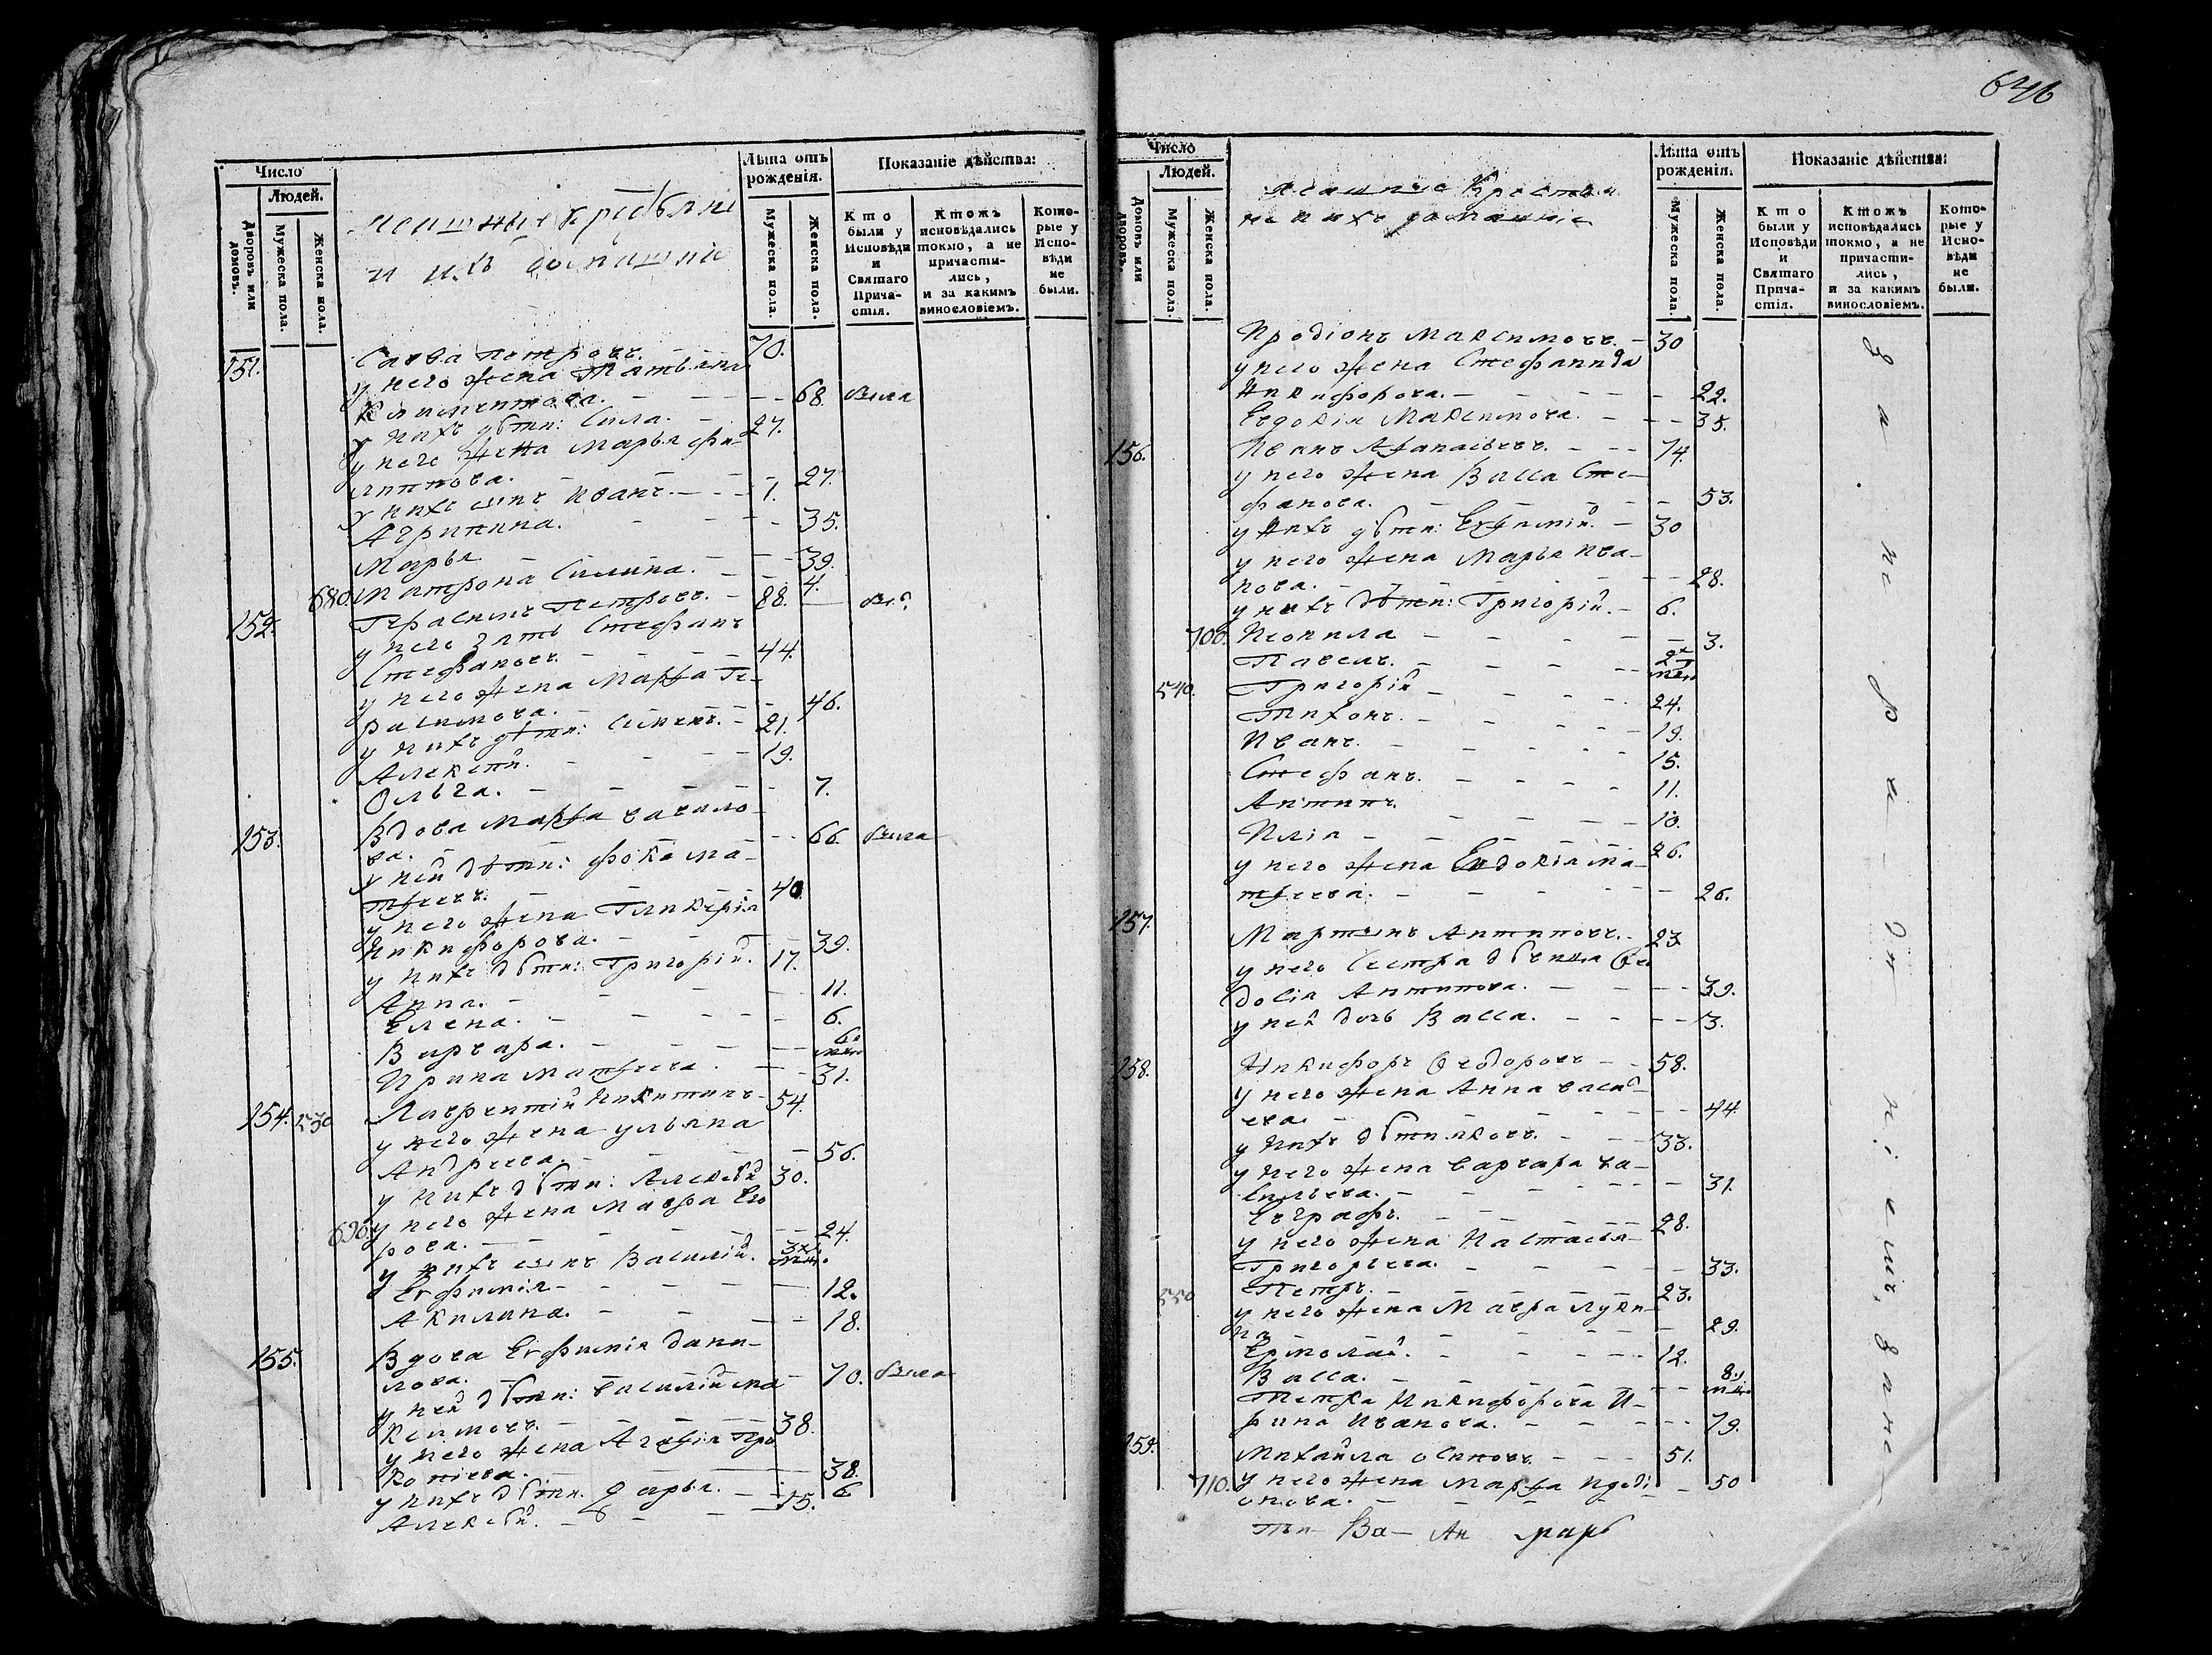 646
Число
Людей.
Дворовъ или домовъ.
Мужеска пола.
Женска пола.
и ихъ домашніе
Лѣта отъ рожденія.
Мужеска пола.
Женска пола.
Показаніе дѣйства:
Кто были у Исповѣди и Святаго Причастія.
Ктожъ исповѣдались токмо, а не причастились, и за какимъ винословіемъ.
Которые у Исповѣди не были.
151. Савва Петровъ. 70.
у него жена Татьяна
Климентова. 68. была
у нихъ дѣти: Сила. 27.
у него жена Марья Фи-
липпова. 27.
у нихъ сынъ Иванъ. 1.
Агрипина. 35.
Марья 39.
680. Матрона Силина. 4.
152. Герасимъ Петровъ. 88.
у него зять Стефанъ
Стефановъ. 44.
у него жена Марѳа Ге-
расимова. 46.
у нихъ дѣти: Симонъ. 21.
Алексѣй. 19.
Ольга. 7.
153. Вдова Марѳа Вавило-
ва. 66. была
у ней дѣти: Фока Ма-
тѳеевъ. 40
у него жена Гликерія
Никифорова. 39.
у нихъ дѣти: Григорій. 17.
Анна. 11.
Елена. 6.
Варвара.
Ирина Матѳеева. 31.
154. 530 Лаврентій Никитинъ 54.
у него жена Ульяна
Андреева. 56.
у нихъ дѣти: Алексѣй 30.
690. у него жена Мавра Его
рова. 24.
у нихъ сынъ Василій.
Евфимія 12.
Акилина. 18.
155. Вдова Евфимія Дани-
лова. 70. была
у ней дѣти: Василій Ма
ксимовъ. 38.
у него жена Агафія Про
копіева. 38.
у нихъ дѣти. Дарья. 6
Алексѣй. 15.
Число
Людей.
Домовъ или дворовъ.
Мужеска пола.
Женска пола.
ясашные Крестья
не и ихъ домашніе
Лѣта отъ рожденія.
Мужеска пола.
Женска пола.
Показаніе дѣйства:
Кто были у Исповѣди и Святаго Причастія.
Ктожъ исповѣдались токмо, а не причастились, и за какимъ винословіемъ.
Которые у Исповѣди не были.
Иродіонъ Максимовъ. 30
у него жена Стефанида
Никифорова. 22.
Евдокія Максимова. 35.
156. Иванъ Афанасьевъ. 74.
у него жена Васса Сте-
фанова. 53.
у нихъ дѣти: Евфимій. 30
у него жена Марья Ива-
нова. 28.
у нихъ дѣти: Григорій. 6.
700. Неонила 3.
Павелъ.
540. Григорій 24.
Тихонъ. 19.
Иванъ. 15.
Стефанъ. 11.
Антипъ. 10.
Илія 26.
у него жена Евдокія Ма-
тѳеева. 26.
157. Мартынъ Антиповъ. 23
у него сестра дѣвица Ѳео
досія Антипова. 39.
у ней дочь Васса. 13.
158. Никифоръ Ѳеодоровъ 58.
у него жена Анна Васил
ева. 44
у нихъ дѣти Яковъ. 33.
у него жена Варвара Ва-
сильева. 31.
Евграфъ. 28.
у него жена Настасья
Григорьева. 33.
550 Петръ. 23.
у него жена Мавра Луки-
на 29.
Ермолай. 12.
Васса.
Тетка Никифорова И-
рина Иванова. 79.
159. Михайла Осиповъ 51.
710. у него жена Марѳа Ироді
онова. 50
за не радѣніемъ,